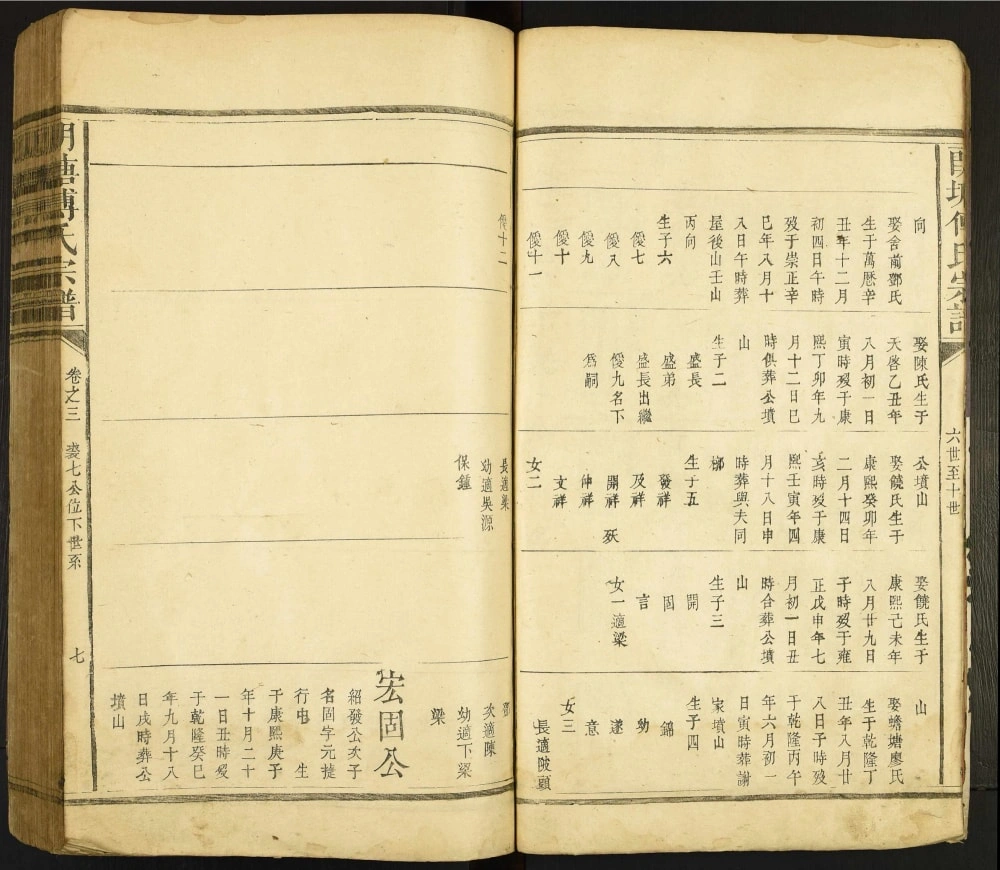 六世至十世
向
娶舍前鄧氏
生于萬厯辛
丑年十二月
初四日午時
歿于崇正辛
巳年八月十
八日午時葬
屋後山壬山
丙向
生子六
優七
優八
優九
優十
優十一
優十二
娶陳氏生于
天啓乙丑年
八月初一日
寅時歿于康
熙丁卯年九
月十二日巳
時俱葬公墳
山
生子二
盛長
盛弟
盛長出繼
優九名下
爲嗣
公墳山
娶饒氏生于
康熙癸卯年
二月十四日
亥時歿于康
熙壬寅年四
月十八日申
時葬與夫同
槨
生子五
發祥
及祥
開祥 殀
仲祥
文祥
女二
長適梁
幼適吳源
保鍾
娶饒氏生于
康熙己未年
八月廿九日
子時歿于雍
正戊申年七
月初一日丑
時合葬公墳
山
生子三
開
固
言
女一適梁
山
娶蟾塘廖氏
生于乾隆丁
丑年八月廿
八日子時歿
于乾隆丙午
年六月初一
日寅時葬謝
家墳山
生子四
錦
幼
遂
意
女三
長適陂頭
次適陳
幼適下梁
梁
宏固公
紹發公次子
名固字元㨗
行 生
于康熙庚子
年十月二十
一日丑時歿
于乾隆癸巳
年九月十八
日戌時葬公
墳山
傅氏宗譜
卷之三
裴七公位下世系
七